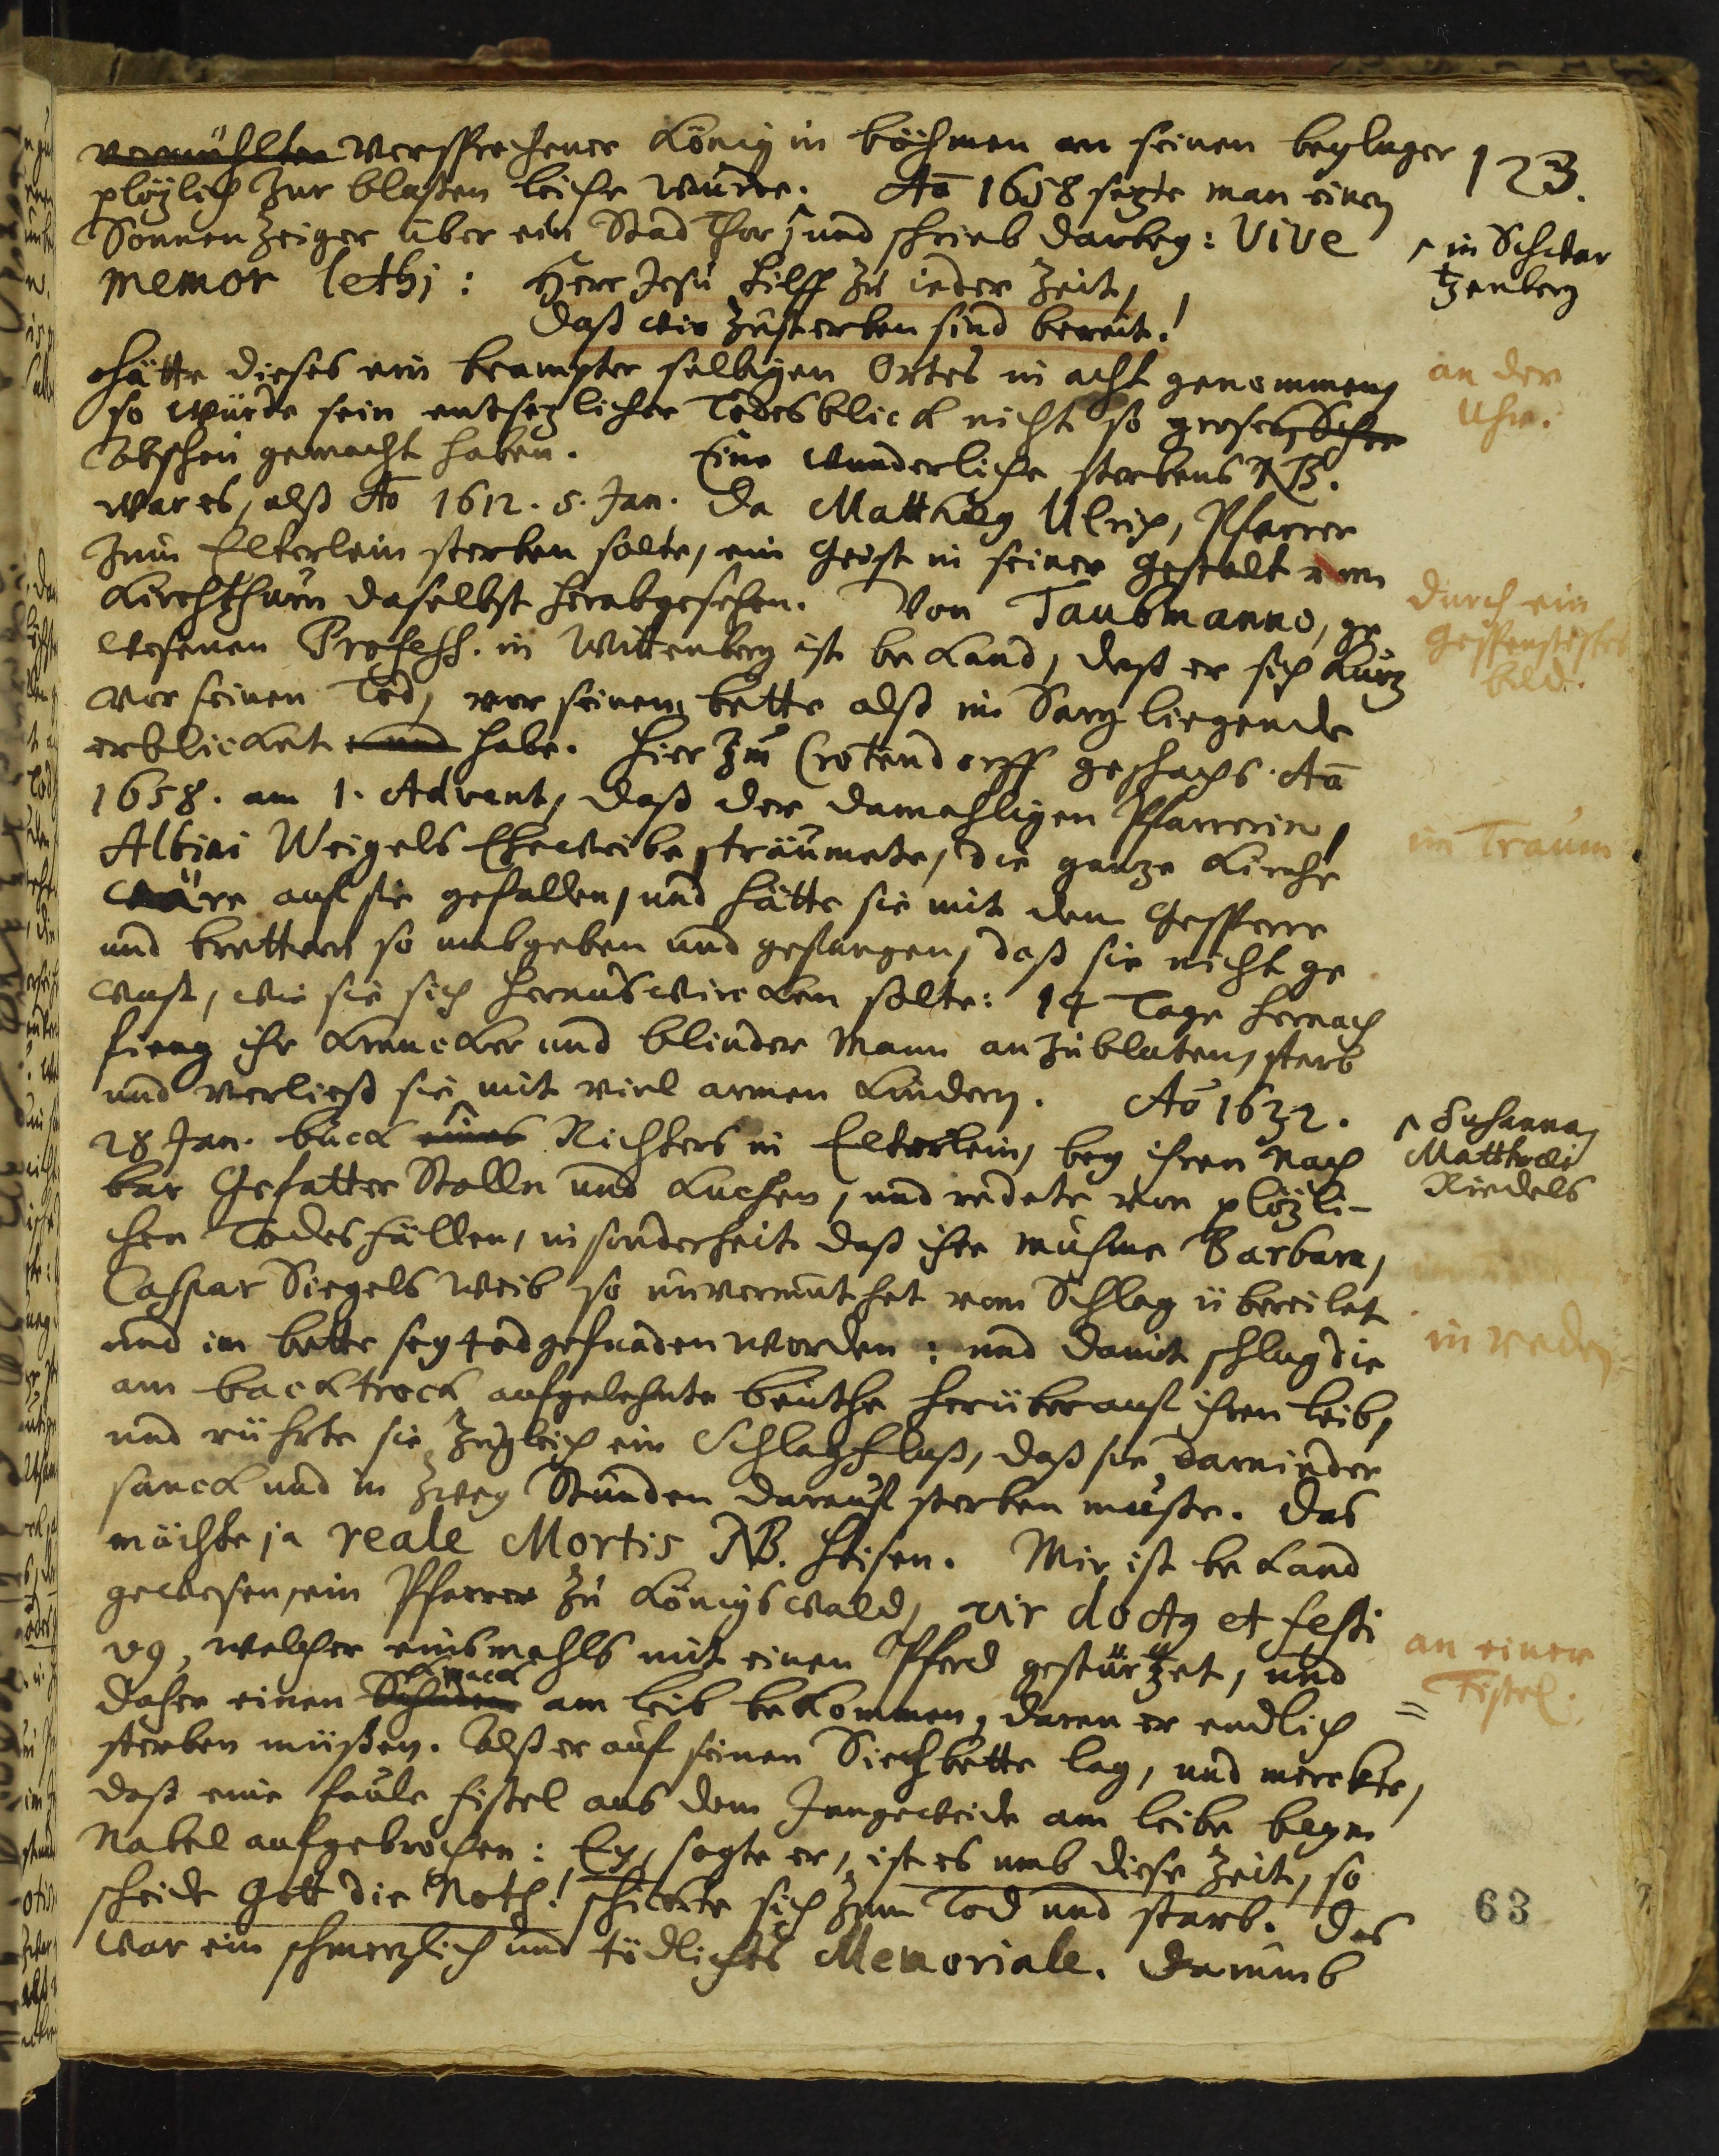 123.
vermählter versprochener König in böhmen an seinen beylager
plözlich zur blaßen leiche wurde. Aō 1658 sezte man einen
Sonnenzeiger über ein Stad Thor ^ und schrieb darbey: Vive
^ in Schwar
tzenberg
memor lethi: Herr Jesu hilff zu ieder Zeit,
daß wir zusterben sind bereit!
hätte dieses ein beampter selbigen Ortes in acht genommen
an der
Uhr.
so würde sein entsezlicher Todesblick nicht so grosen Scheu
Abscheu gemacht haben. Eine wunderliche sterbens NB.
war es, alß Aō 1612. 5. Jan. da Matthæg Ulrich, Pfarrer
zum Elterlein sterben solte, ein Geist in seiner gestalt vom
Kirchthurn daselbst herabgesehen. Von Taubmanno, ge
durch ein
gespenstisches
bild.
wesenen Profess. in Wittenberg ist bekand, daß er sich kurz
vor seinen Tod, vor seinem bette alß im Sarg liegende
erblicket und habe. Hier zu Crotendorff geschachs Aō
1658. am 1. Advent, daß der damahligen Pfarrerin,
Albini Weigels Eheweibe, träumete, die ganze Kirche
im Traum
wäre auf sie gefallen, und hätte sie mit dem Gesperre
und brettern so umbgeben und gefangen, daß sie nicht ge
wust, wie sie sich herauswircken solte: 14 Tage hernach
fieng ihr krancker und blinder Mann an zubluten, starb
und verließ sie mit viel armen Kindern. Aō 1632.
28 Jan. buck ^ eines Richters in Elterlein, bey ihren Nach
^ Susanna
Matthæi
Riedels
bar Gefatter Stolln und Kuchen, und redete von plözli-
chen Todesfällen, insonderheit daß ihre Muhme Barbara,
Caspar Siegels Weib so unvermuthet vom Schlag übereilet
und im bette sey tod gefunden worden: und damit schlug die
in reden
am backtrock aufgelehnte beuthe herüber auf ihren leib,
und rührte sie zugleich ein Schlagfluß, daß sie darnieder
sanck und in zwey Stunden darauf sterben muste. Das
möchte ja reale Mortis NB. heisen. Mir ist bekand
gewesen, ein Pfarrer zu Königswald, vir doctg et festi
vg, welcher einsmahls mit einen Pferd gestürzet, und
an einer
Fistel.
daher einen Schaden Knack am leib bekommen, daran er endlich
sterben müßen. Alß er auf seinen Siechbette lag, und merckte,
daß eine faule fistel aus dem Ingeweide am leibe beym
Nabel aufgebrochen: Ey, sagte er, ist es umb diese Zeit, so
scheide Gott die Noth! schickte sich zum Tod und starb. Das
63
war ein schmerzlich und tödliches Memoriale. Darumb